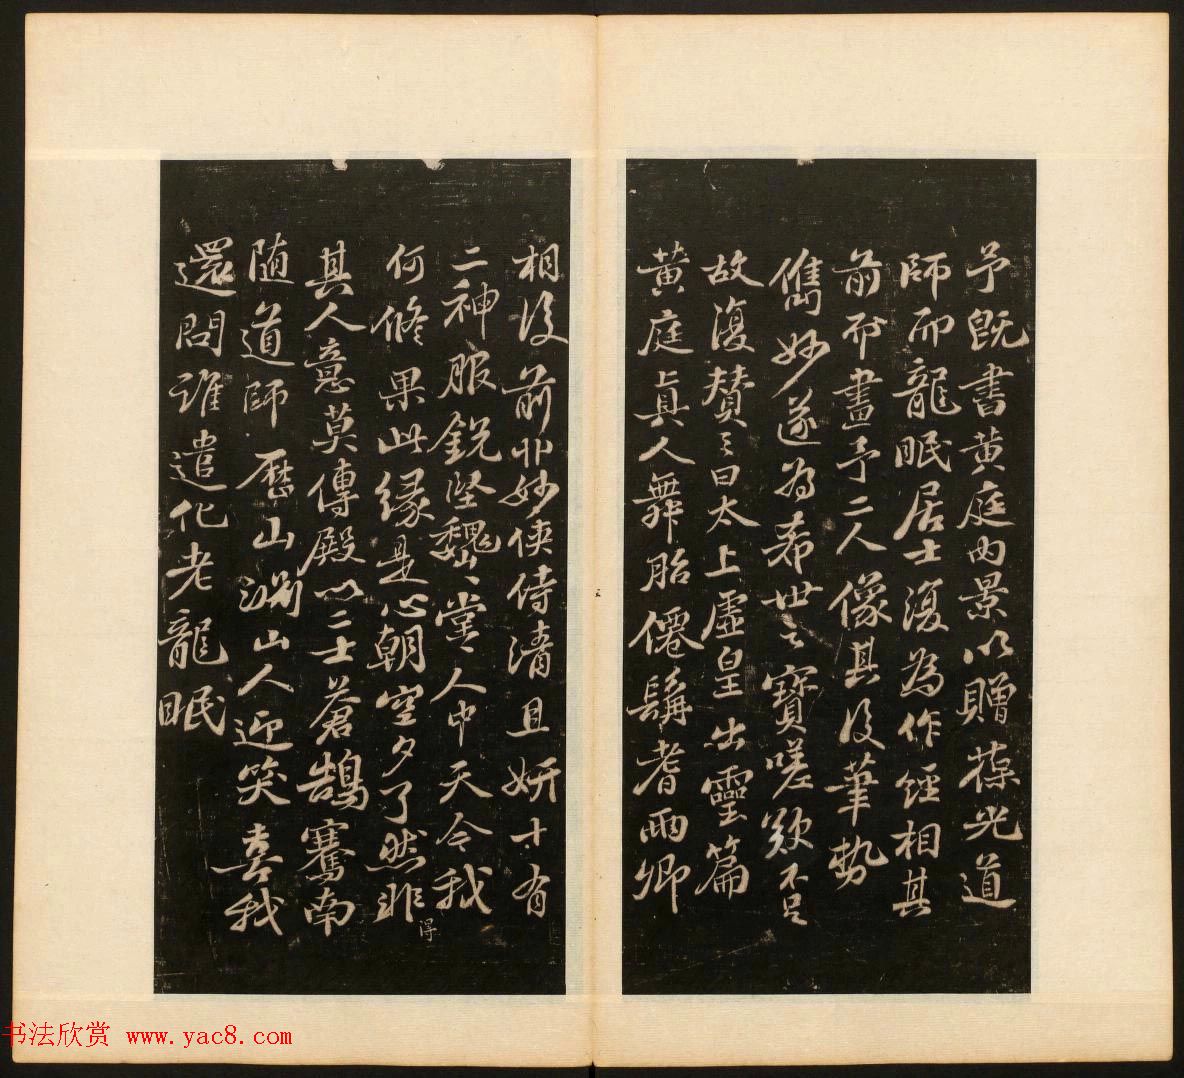 予既書黃庭內景以贈葆光道
師而龍眠居士復為作經相其
前而畫予二人像其後筆勢
儁妙遂為希世之寶嗟歎不足
故復贊之曰太上虛皇出靈篇
黃庭真人舞胎僊髯耆兩卿
相後前丱妙俠侍清且妍十有
二神服銳堅巍巍堂堂人中天令我
何脩果此緣是心朝空夕了然非
得
其人意莫傳殿以二士蒼鵠騫南
隨道師歷山淵山人迎笑喜我
還問誰遣化老龍眠
书法欣赏 www.yac8.com